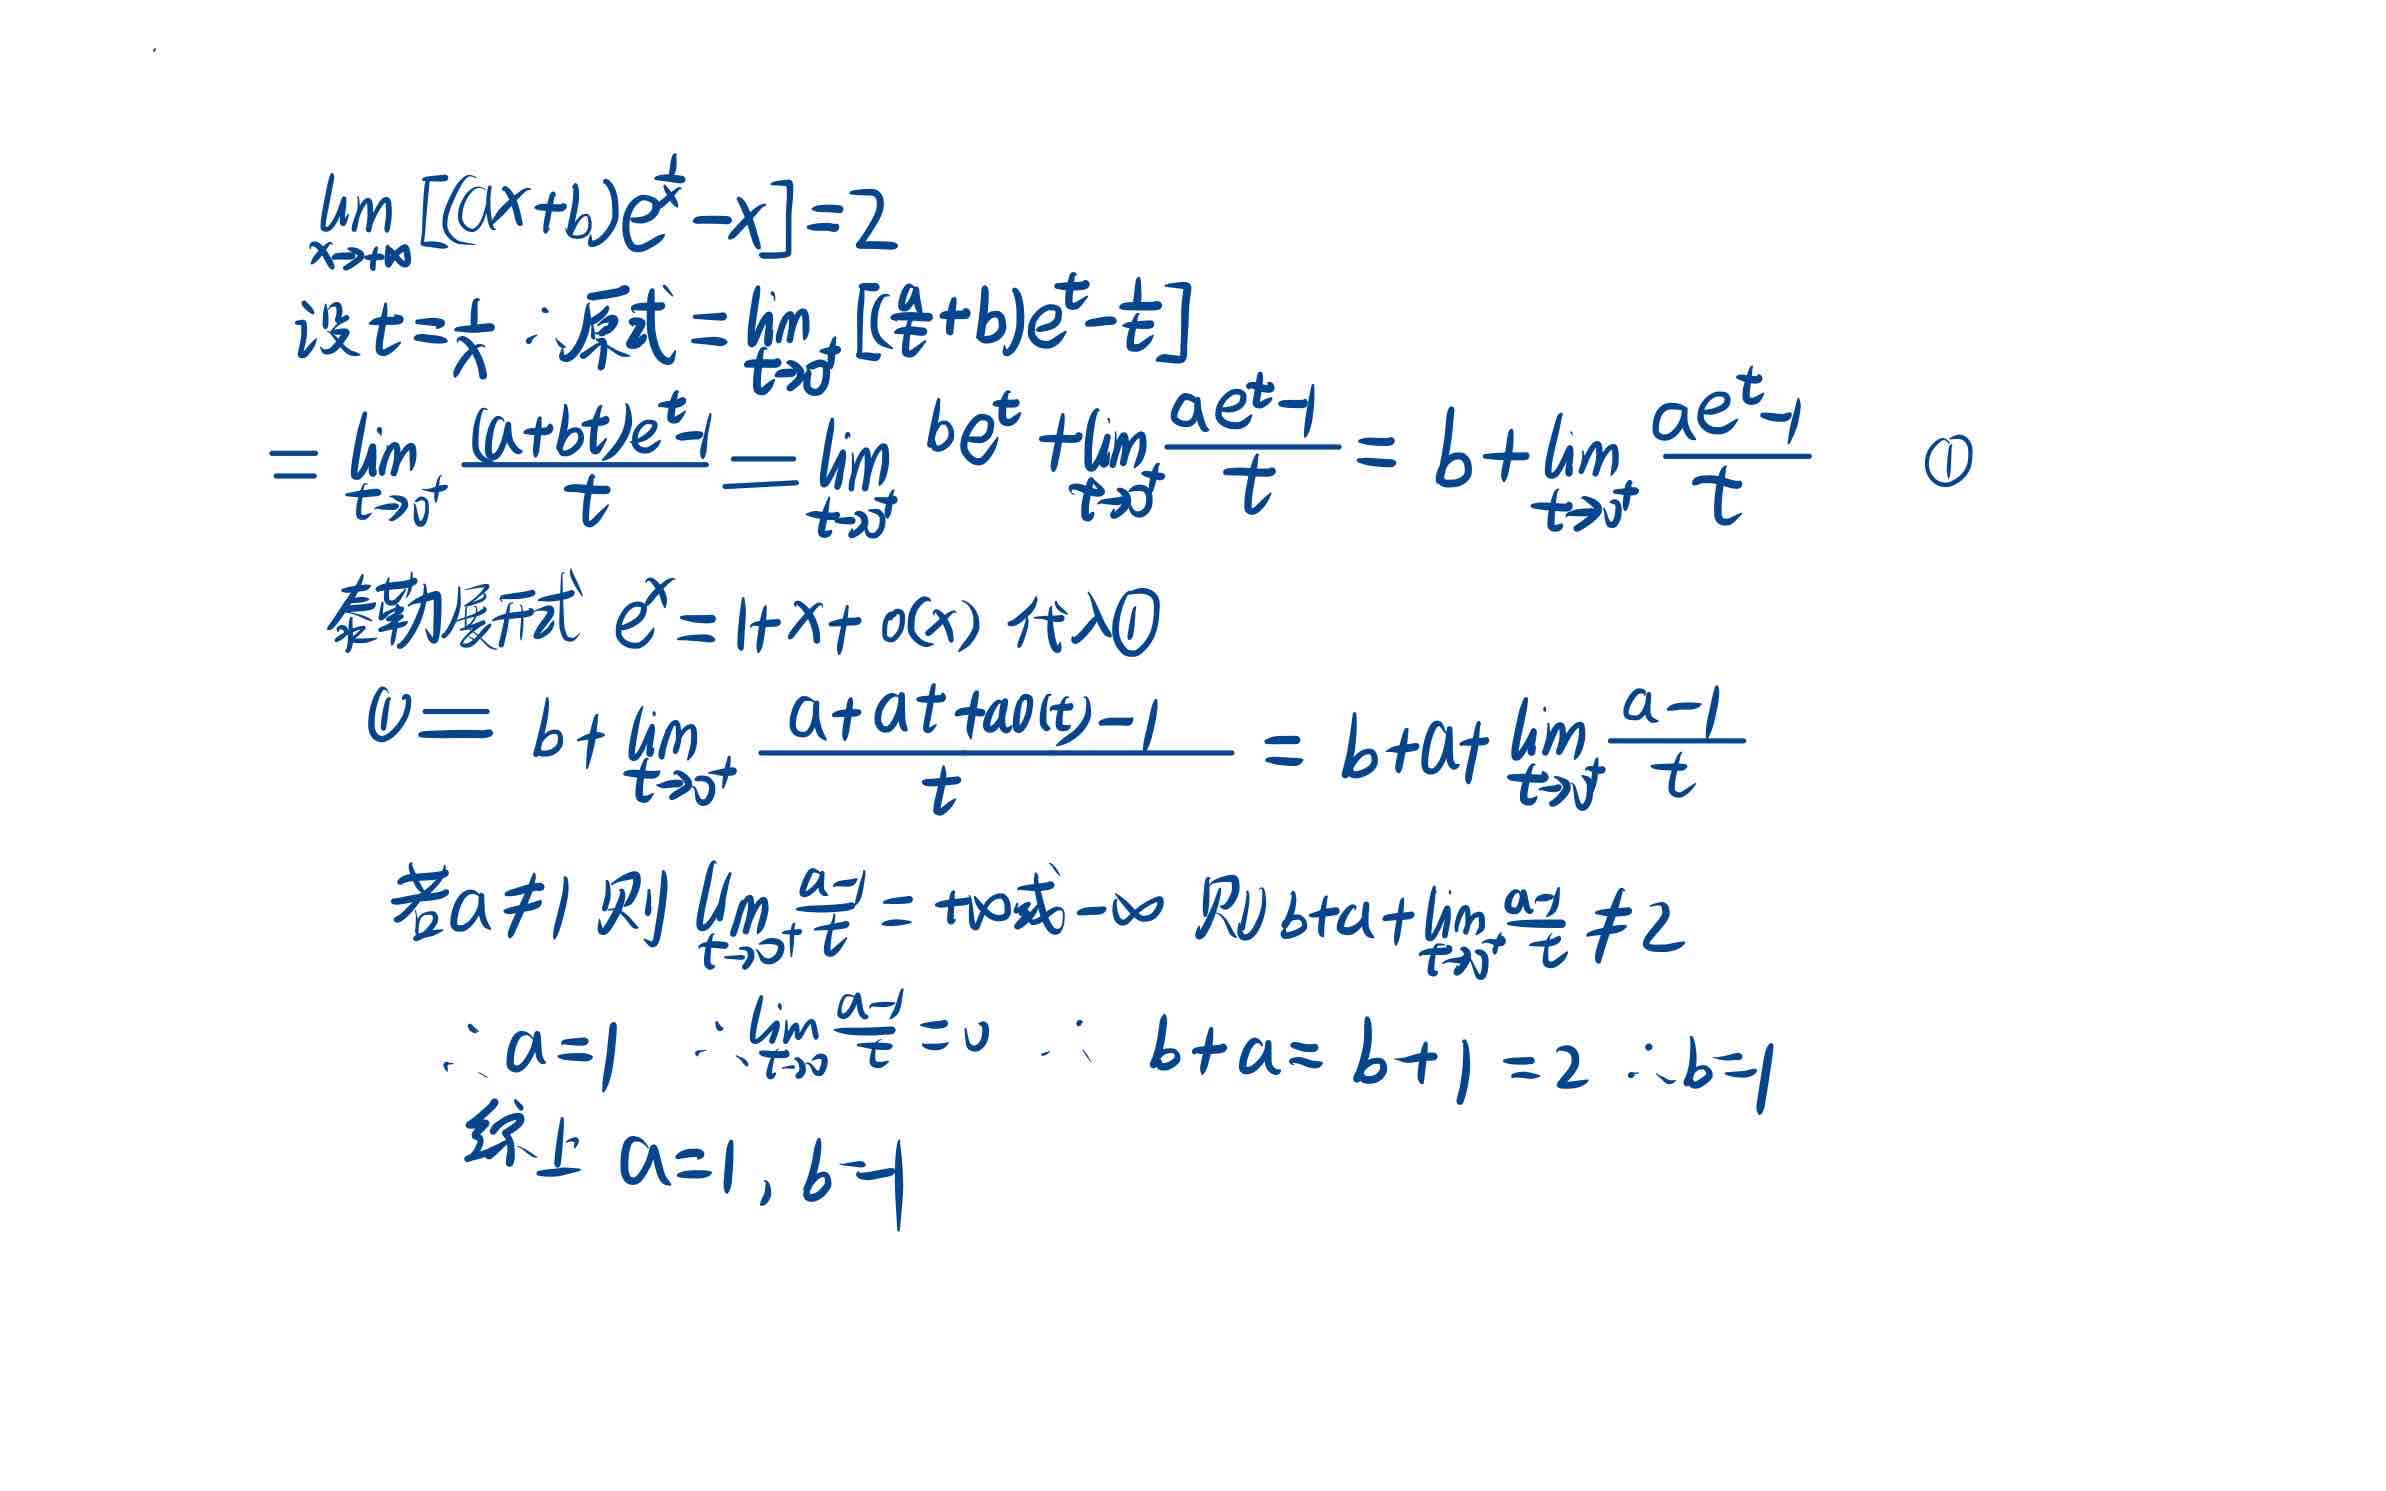 lim x→+∞ [(ax+b)e^(1/x) - x] = 2
设 t = 1/x ∴原式 = lim t→0⁺ [(a/t+b)e^t - 1/t]
= lim t→0⁺ ((a+bt)e^t-1)/t = lim t→0⁺ be^t + lim t→0⁺ (ae^t-1)/t = b + lim t→0⁺ (ae^t-1)/t ①
泰勒展示式 e^x = 1+x+o(x) 代入①
① = b + lim t→0⁺ (a+at+ao(t)-1)/t = b+a+ lim t→0⁺ (a-1)/t
若a≠1 则 lim t→0⁺ (a-1)/t = +∞或-∞ 则 b+a+ lim t→0⁺ (a-1)/t ≠ 2
∴ a=1 ∴ lim t→0 (a-1)/t = 0 ∴ b+a = b+1 = 2 ∴ b=1
综上 a=1, b=1